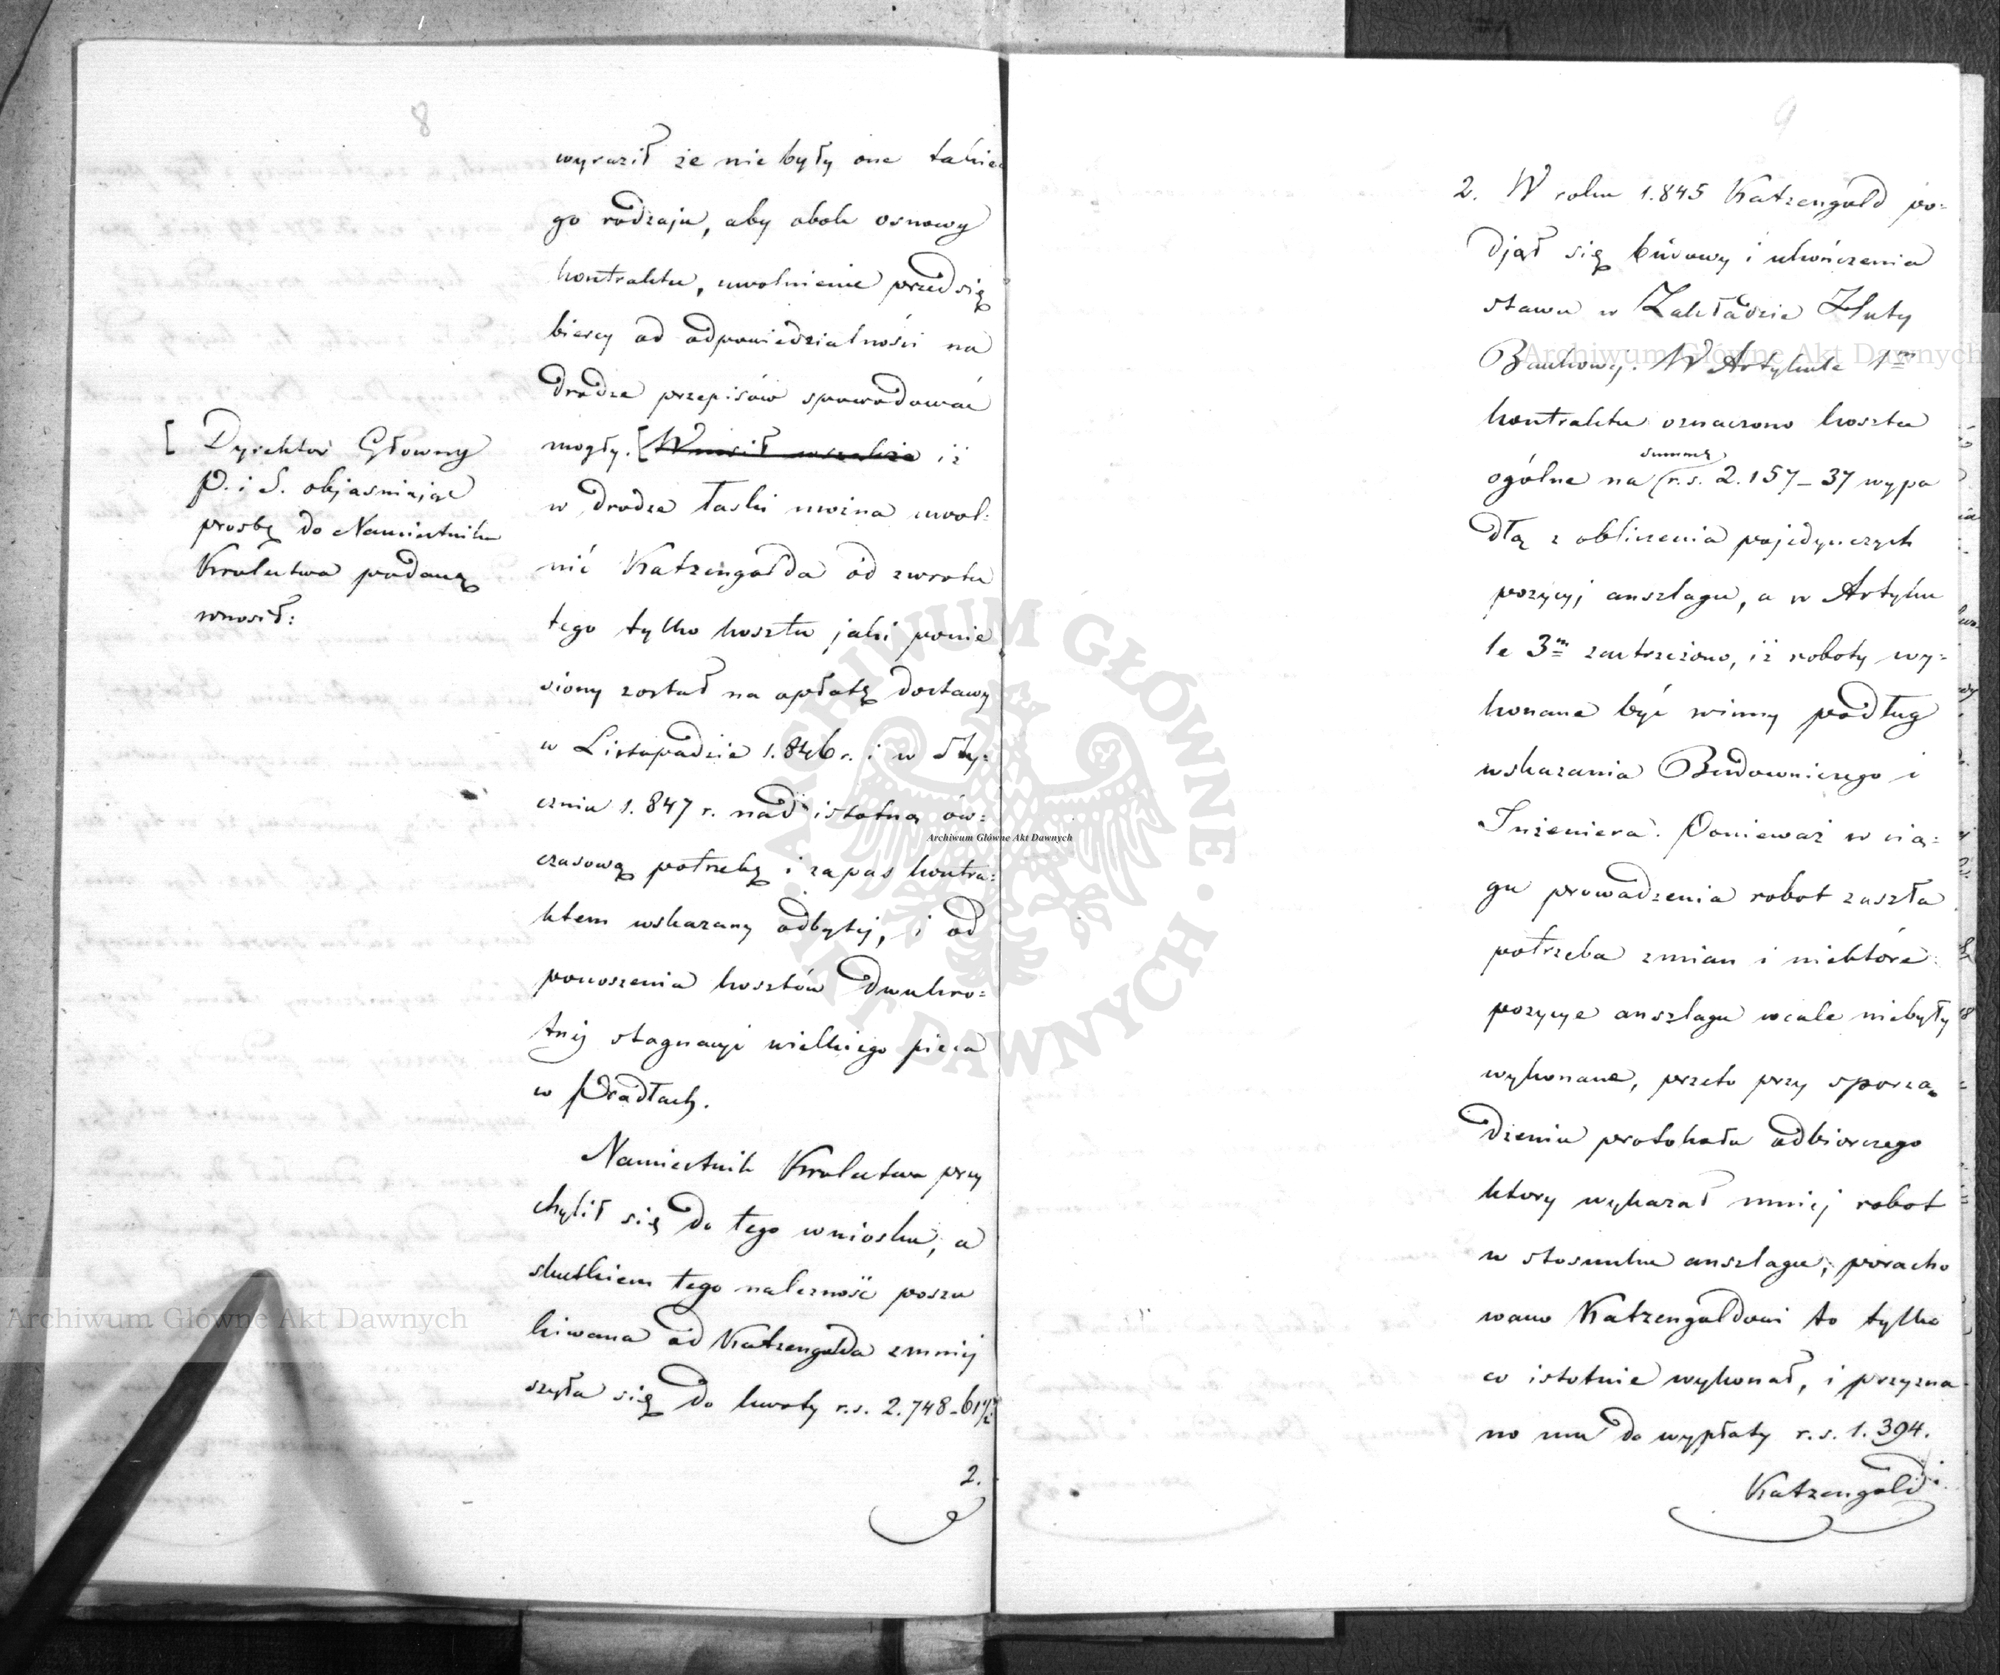 8
wyraził że nie były one takie
go rodzaju, aby obok osnowy
kontraktu, uwolnienie przedsię
biercy od odpowiedzialności na
drodze przepisów spowodować
mogły. [Wnosił wszakże iż
w drodze łaski można uwol-
nić Katzengolda od zwrotu
tego tylko kosztu jaki ponie
siony został na opłatę dostawy
w Listopadzie 1.846 r. i w Sty-
czniu 1.847 r. nad istotną ów-
czasową potrzebę i zapas kontra-
ktem wskazany odbytej, i od
ponoszenia kosztów dwukro-
tnej stagnacyi wielkiego pieca
w Pradłach.
Namiestnik Królestwa przy
chylił się do tego wniosku, a
skutkiem tego należność poszu
kiwana od Katzengolda zmniej
szyła się do kwoty r.s. 2.748-61½
2.
[ Dyrektor Główny
P. i S. objaśniając
prośbę do Namiestnika
Królestwa podaną
wnosił:
9
2. W roku 1.845 Katzengold po-
djął się budowy i ukończenia
stawu w Zakładzie Huty
Bankowej. W Artykule 1m
kontraktu oznaczono koszta
summę
ogólne na r.s. 2.157-37 wypa
dłą z obliczenia pojedynczych
pozycyj anszlagu, a w Artyku
le 3m zastrzeżono, iż roboty wy-
konane być winny podług
wskazania Budowniczego i
Inżeniera. Ponieważ w cią-
gu prowadzenia robot zaszła
potrzeba zmian i niektóre
pozycye anszlagu wcale niebyły
wykonane, przeto przy sporzą
dzeniu protokołu odbiorczego
ktory wykazał mniej robot
w stosunku anszlagu, poracho
wano Katzengoldowi to tylko
co istotnie wykonał, i przyzna
no mu do wypłaty r.s. 1.394.
Katzengold
Archiwum Główne Akt Dawnych
Archiwum Główne Akt Dawnych
Archiwum Główne Akt Dawnych
ARCHIWUM GŁÓWNE · AKT DAWNYCH ·